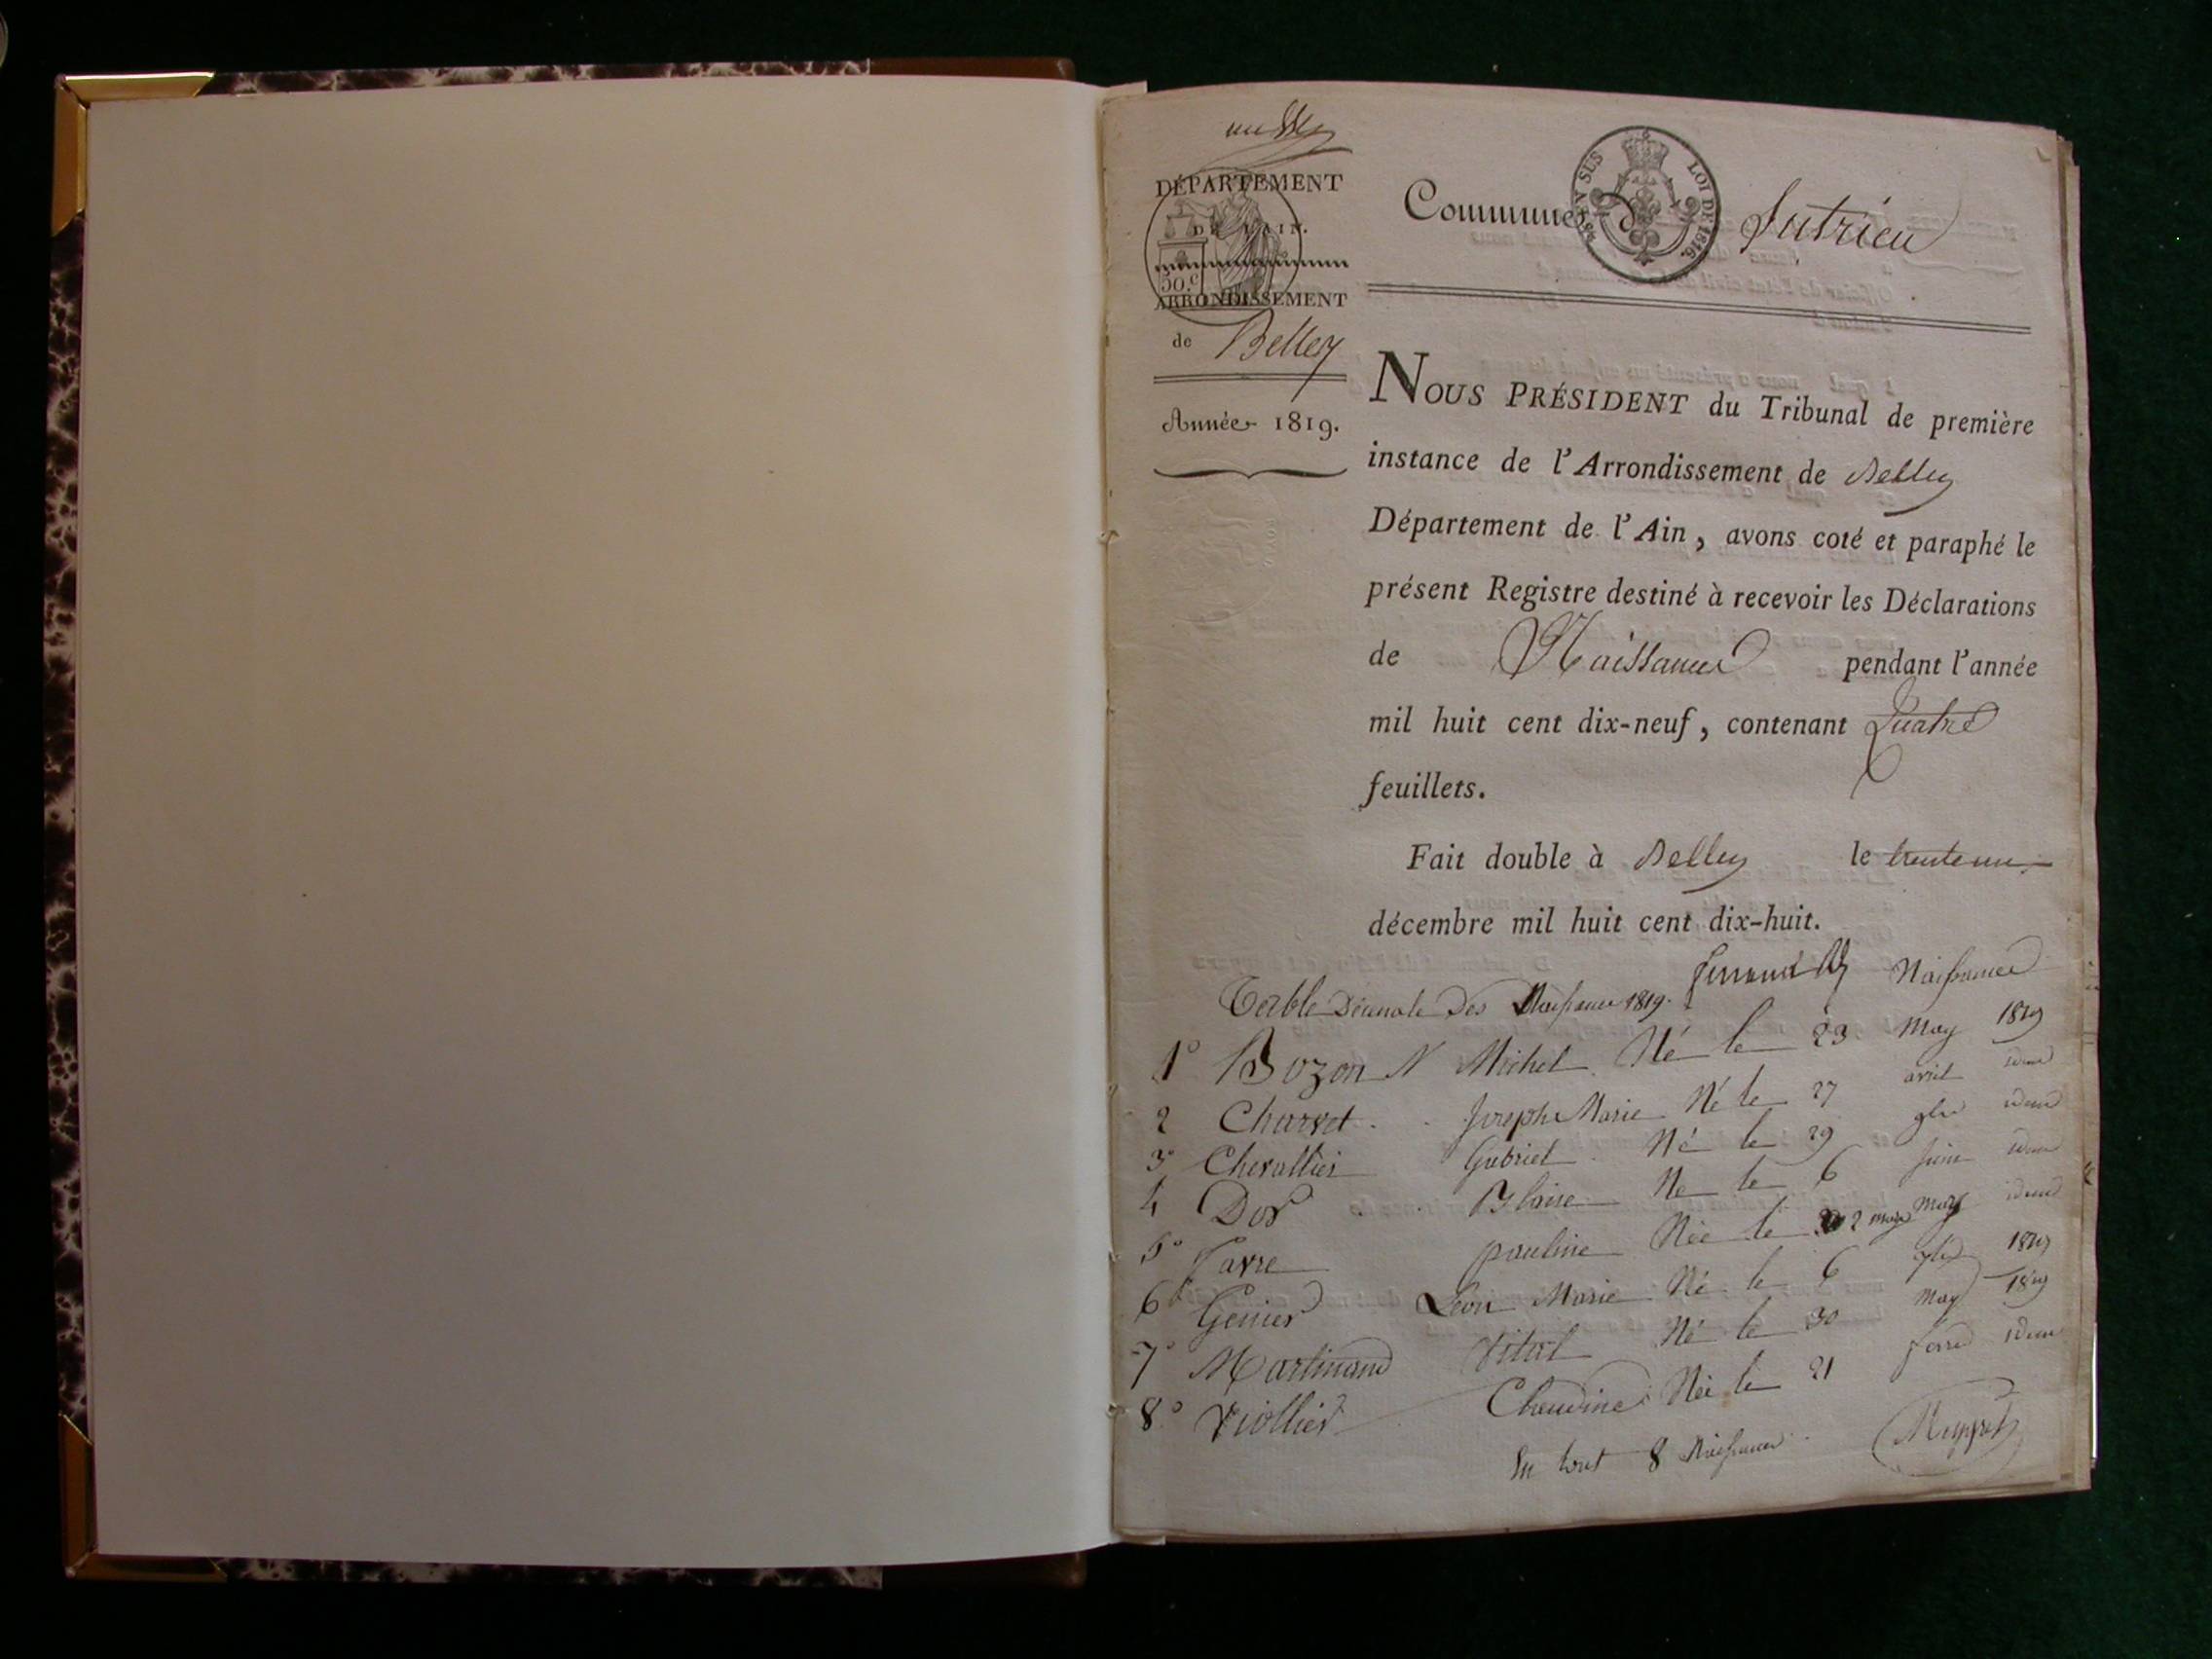 DÉPARTEMENT
DE L'AIN.
50.c
ARRONDISSEMENT
de Belley
Année 1819.
Commune de Sutrieu
LOI DE 1816.
NOUS PRÉSIDENT du Tribunal de première
instance de l'Arrondissement de Belley
Département de l'Ain, avons coté et paraphé le
présent Registre destiné à recevoir les Déclarations
de Naissances pendant l'année
mil huit cent dix-neuf, contenant Quatre
feuillets.
Fait double à Belley le trente un
décembre mil huit cent dix-huit.
Table Décenale Des Naissance 1819. Naissance
1º Bozon Michel Né le 23 May 1819
2 Charvet Joseph Marie Né le 27 avril idem
3º Chevallier Gabriel Né le 29 idem
4 Dor Blaise Né le 6 juin idem
5º Favre pauline Née le 2 may idem
6º Genier Léon Marie Né le 6 1819
7º Martinand Vital Né le 30 May 1819
8º Viollier Claudine Née le 21 idem
En tout 8 Naissances